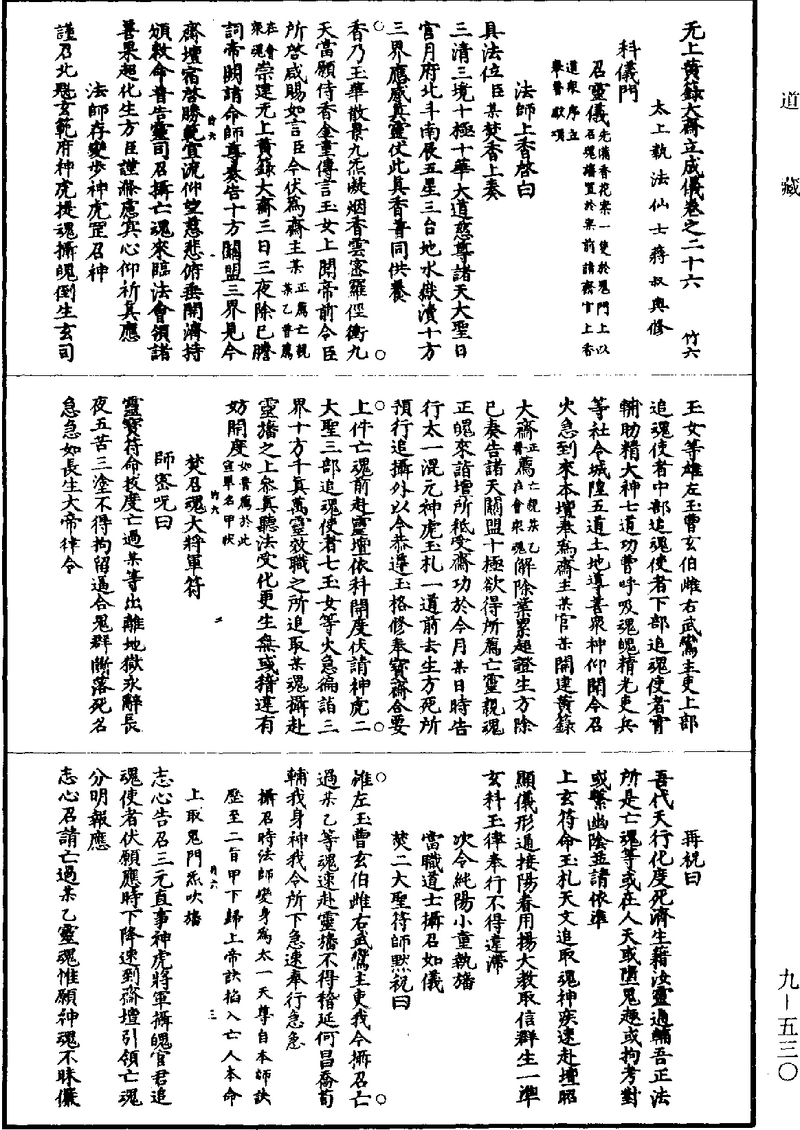 道藏
无上黃籙大齋立成儀卷之二十六 竹六
太上執法仙士蔣叔輿修
科儀門
召靈儀先備香花案一隻於鬼門上以召魂旛置於案前請齋官上香道眾序立舉普獻頌
法師上香啓白
具法位臣某焚香上奏
三清三境十極十華大道慈尊諸天大聖日
宮月府北斗南辰五星三台地水嶽瀆十方
三界應感真靈伏此真香普同供養
香乃玉華散景九炁凝烟香雲密羅徑衝九
天當願侍香金童傳言玉女上聞帝前令臣
所啓咸賜如言臣今伏為齋主某正薦亡親某乙普薦在會眾魂崇建无上黃籙大齋三日三夜除已謄
詞帝闕請命師尊奏告十方關盟三界見今
齋壇宿啓勝範宣流仰望慈悲俯垂開濟持
頒敕命普告靈司召攝亡魂來臨法會領諸
善果超化生方臣謹滌慮冥心仰祈真應
法師存變步神虎罡召神
謹召北魁玄範府神虎捉魂攝魄倒生玄司
玉女等雄左玉曹玄伯雌右武鸞主吏上部
追魂使者中部追魂使者下部追魂使者霄
輔助精大神七道功曹呼吸魂魄精光吏兵
等社令城隍五道土地導善眾神仰聞今召
火急到來本壇奉為齋主某官某開建黃籙
大齋正薦亡親某乙普薦在會眾魂解除業累超證生方除
已奏告諸天關盟十極欲得所薦亡靈親魂
正魄來詣壇所祗受齋功於今月某日時告
行太一混元神虎玉札一道前去生方死所
預行追攝外以今恭遵玉格修奉寶齋合要
上件亡魂前赴靈壇依科開度伏請神虎二
大聖三部追魂使者七玉女等火急徧詣三
界十方千真萬靈效職之所追取某魂攝赴
靈旛之上參真聽法受化更生無或稽違有
妨開度如普薦於此宣單名甲狀
焚召魂大將軍符
師密呪曰
靈寶符命救度亡過某等出離地獄永辭長
夜五苦三塗不得拘留逼合鬼群斷落死名
急急如長生大帝律令
再祝曰
吾代天行化度死濟生藉汝靈通輔吾正法
所是亡魂等或在人天或墮鬼趣或拘考對
或繫幽陰並請依準
上玄符命玉札天文追取魂神疾速赴壇昭
顯儀形通接陽眷用揚大教取信群生一準
玄科玉律奉行不得違滯
次令純陽小童執旛
當職道士攝召如儀
焚二大聖符師默祝曰
雄左玉曹玄伯雌右武鸞主吏我今攝召亡
過某乙等魂速赴靈旛不得稽延何昌喬荀
輔我身神我令所下急速奉行急急
攝召時法師變身為太一天尊自本師訣
歷至二旨甲下歸上帝訣掐入亡人本命
上取鬼門炁吹旛
志心告召三元直事神虎將軍攝魄官君追
魂使者伏願應時下降速到齋壇引領亡魂
分明報應
志心召請亡過某乙靈魂惟願神魂不昧儼
九—五三〇